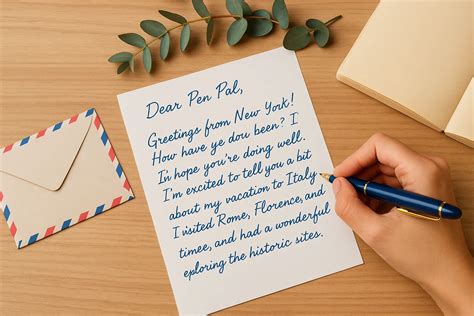 Dear Pen Pal,
Greetings from New York!
How have ye dou been? I
I'n hope you're doing well.
I'm excited to tell you a bit
about my vacation to Italy
I visited Rome, Florence, and
timee, and had a wonderful
eploring the historic sites.